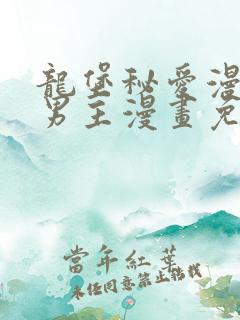 龍堡秘愛漫
男主漫畫免
當年紅葉
未經同意禁止轉載